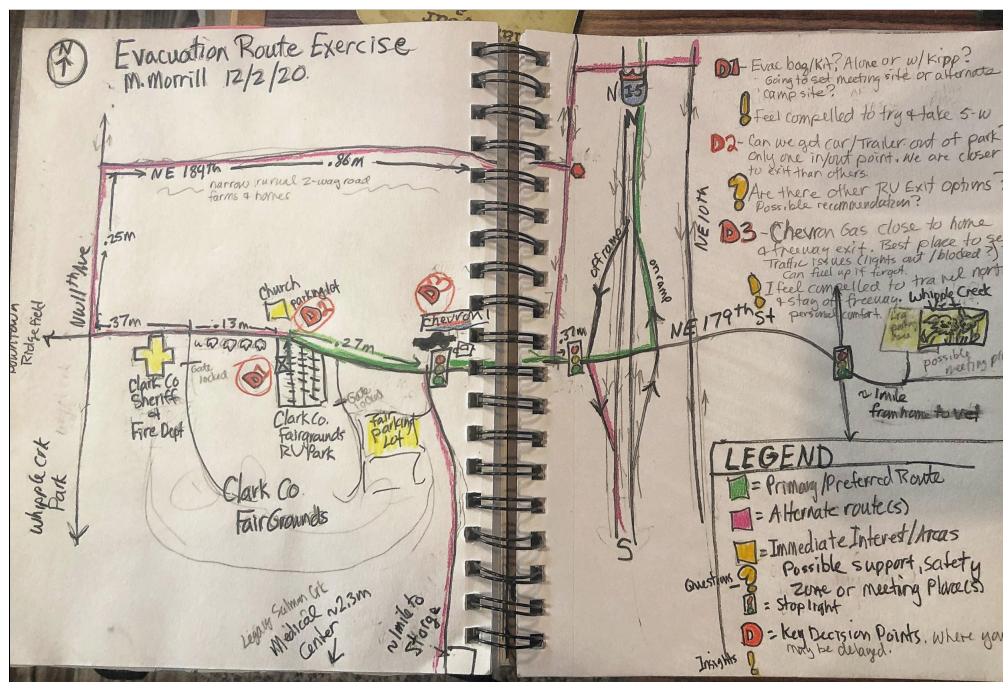 N
Evacuation Route Exercise
M. Morrill 12/2/20.
NE 189th .86m
narrow rural 2-way road
farms & homes
.25m
NW 11th Ave
Downtown
Ridgefield
.37m
.13m
Church
parking lot
D2
D3
Chevron
.27m
Gate
locked
D1
Clark Co
Sheriff
&
Fire Dept
Clark Co.
Fairgrounds
RV Park
Gate
locked
fair
Parking
Lot
Whipple Crk
Park
Clark Co
FairGrounds
Legacy Salmon Crk
Medical ~2.3m
Center
~1 mile to
Storage
N
I-5
N
off ramp
on ramp
NE 10th
.37m
NE 179th St
S
D1- Evac bag/kit? Alone or w/ Kipp?
Going to set meeting site or alternate
camp site?
! Feel compelled to try & take 5-W
D2- Can we get car/Trailer out of park
Only one in/out point. We are closer
to exit than others.
? Are there other RV Exit Options?
Possible recommendation?
D3 - Chevron Gas close to home
& freeway exit. Best place to
Traffic issues (lights out/blocked?)
Can fuel up if forgot.
! I feel compelled to travel
& stay off freeway.
personal comfort.
Whipple Creek
possible
meeting
~1 mile
from home to vet
LEGEND
= Primary/Preferred Route
= Alternate route(s)
= Immediate Interest/Areas
Possible support, safety
zone or meeting place(s)
Questions ?
= Stop light
D = Key Decision Points. Where
may be delayed.
Insights !